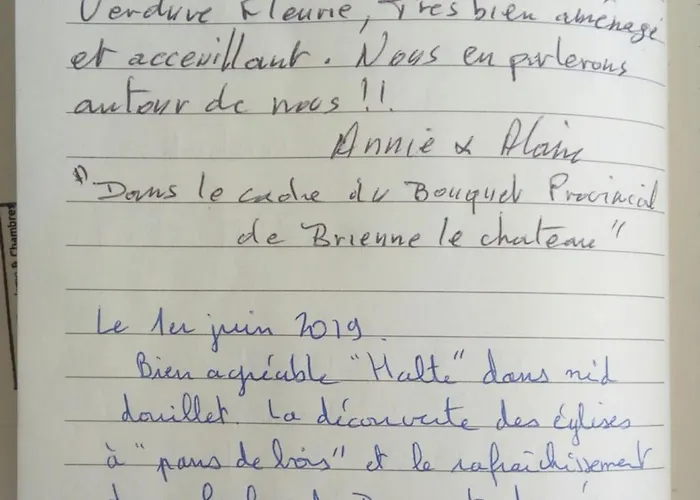 Verdure Fleurie, très bien aménagé
et acceuillant. Nous en parlerons
autour de nous !!
Annie & Alain
*) "Dans le cadre du Bouquet Provincial
de Brienne le chateau"
Le 1er juin 2019.
Bien agréable "Halte" dans nid
douillet. La découverte des églises
à "pans de bois" et le rafraîchissement
& Chambres